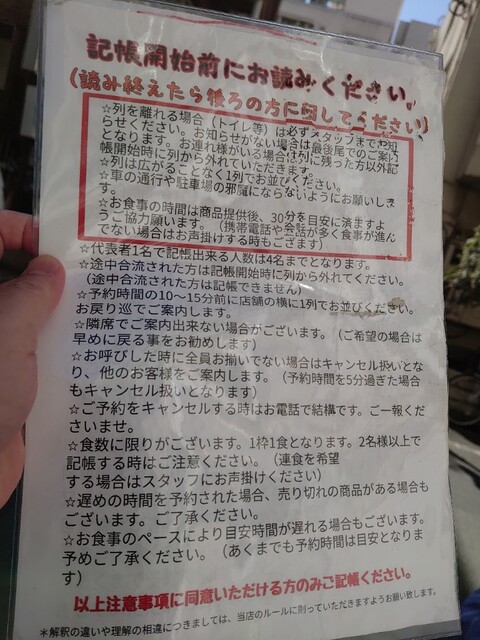 記帳開始前にお読みください。
(読み終えたら後ろの方に回してください)
☆列を離れる場合（トイレ等）は必ずスタッフまでお知
らせください。お知らせがない場合は最後尾でのご案内
となります。お連れ様がいる場合は列に残った方以外記
帳開始時に列から外れていただきます。
☆列は広がることなく1列でお並びください。
☆車の通行や駐車場の邪魔にならないようにお願いしま
す。
☆お食事の時間は商品提供後、30分を目安に済ますよ
うご協力願います。（携帯電話や会話が多く食事が進ん
でない場合はお声掛けする時もござます）
☆代表者1名で記帳出来る人数は4名までとなります。
☆途中合流された方は記帳開始時に列から外れてください。
（途中合流された方は記帳できません）
☆予約時間の10～15分前に店舗の横に1列でお並びください。
お戻り巡でご案内します。
☆隣席でご案内出来ない場合がございます。（ご希望の場合は
早めに戻る事をお勧めします）
☆お呼びした時に全員お揃いでない場合はキャンセル扱いとな
り、他のお客様をご案内します。（予約時間を5分過ぎた場合
もキャンセル扱いとなります）
☆ご予約をキャンセルする時はお電話で結構です。ご一報くだ
さいませ。
☆食数に限りがございます。1枠1食となります。2名様以上で
記帳する時はご注意ください。（連食を希望
する場合はスタッフにお声掛けください）
☆遅めの時間を予約された場合、売り切れの商品がある場合も
ございます。ご了承ください。
☆お食事のペースにより目安時間が遅れる場合もございます。
予めご了承ください。（あくまでも予約時間は目安となりま
す）
以上注意事項に同意いただける方のみご記帳ください。
＊解釈の違いや理解の相違につきましては、当店のルールに則っていただきますようお願い致します。